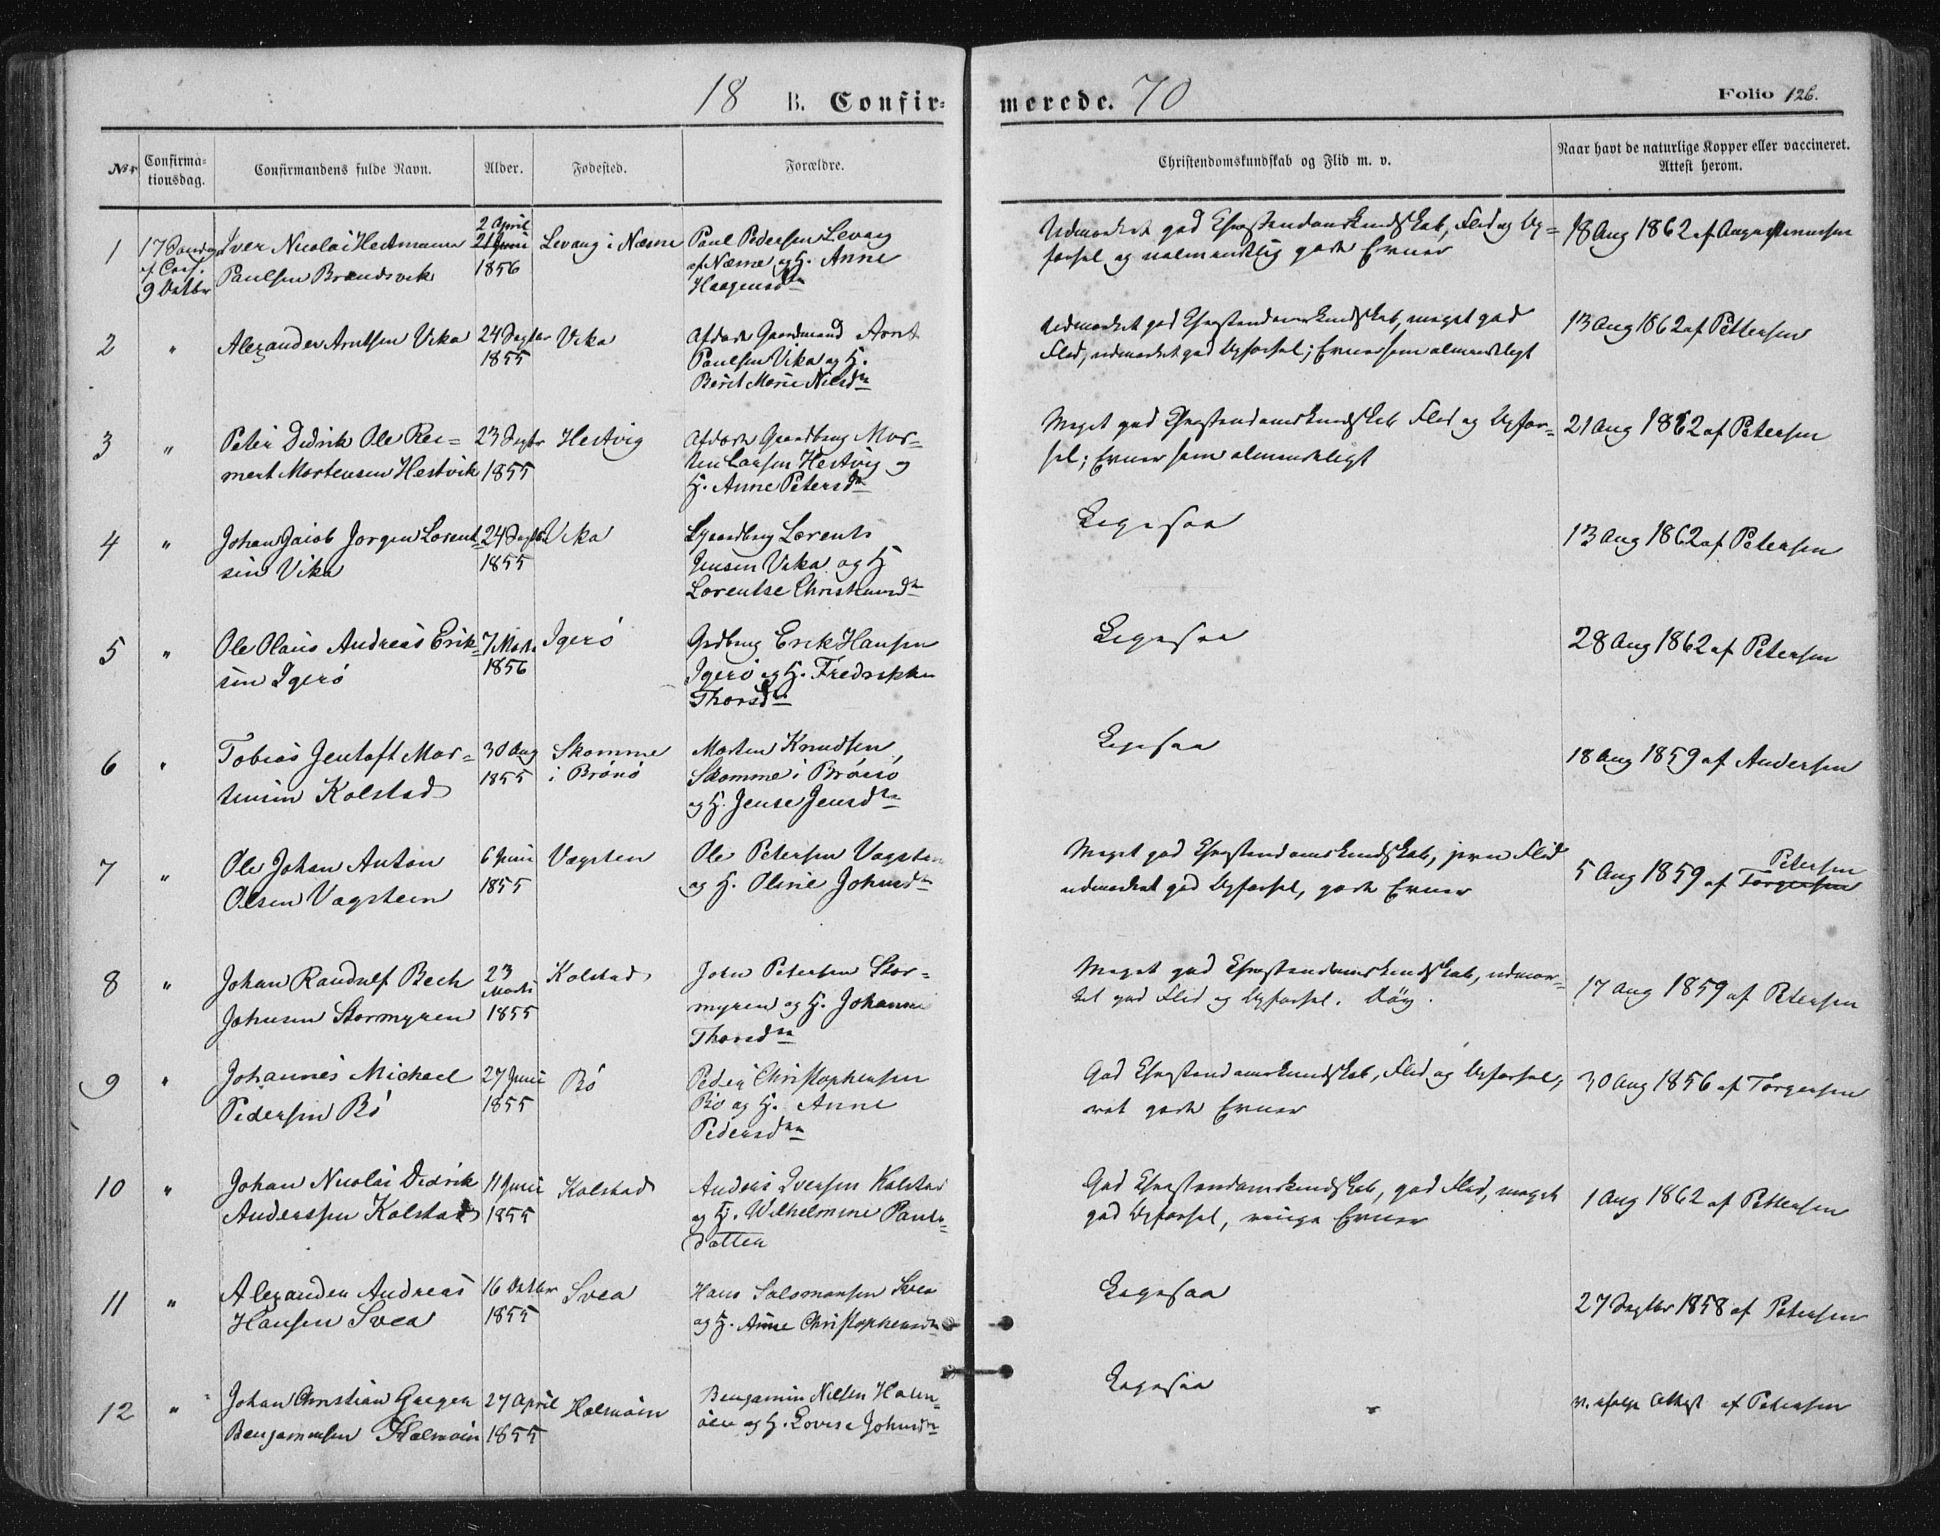 18 B. Confir- merede. 70
Folio 126.
Nr
Confirma-
tionsdag.
Confirmandens fulde Navn.
Alder.
Fødested.
Forældre.
Christendomskundskab og Flid m. v.
Naar havt de naturlige Kopper eller vaccineret.
Attest herom.
1 17 Søndag Iver Nicolai Heitmann 2 April 21 Juni Levang i Næsne Paul Pedersen Levang Udmærket god Christendomskundskab, Flid og Op= 18 Aug 1862 af
9 Octbr Paulsen Brandsvik 1856 af Næsne og H. Anne førsel og ualmindelig gode Evner
Haagensdtr
2 " Alexander Arntsen Vika 24 Septbr Vika Afdøde Gaardmand Arnt Udmærket god Christendomskundskab, meget god 13 Aug 1862 af Pettersen
1855 Paulsen Vika og H. Flid, udmærket god Opførsel; Evner som almindeligt
Berit Marie Nilsdtr
3 " Peter Didrik Ole Rei= 23 Septbr Hestvig Afdøde Gaardbrug Mor= Meget god Christendomskundskab Flid og Opfør= 21 Aug 1862 af Petersen
mert Mortensen Hestvik 1855 ten Larsen Hestvig og sel; Evner som almindeligt
H. Anne Petersdtr
4 " Johan Jacob Jørgen Lorent= 24 Septbr Vika Gaardbrug Lorents Ligesaa 13 Aug 1862 af Petersen
sen Vika 1855 Jensen Vika og H
Lorentse Christiansdtr
5 " Ole Olaus Andreas Erik= 7 Marts Igerö Grdbrug Erik Hansen Ligesaa 28 Aug 1862 af Petersen
sen Igerö 1856 Igerö og H. Fredrikke
Thorsdtr
6 " Tobias Jentoft Mor= 30 Aug Skomme Morten Knudsen Ligesaa 18 Aug 1859 af Andersen
tensen Kolstad 1855 i Brönö Skomme i Brönö
og H. Jense Jensdtr
7 " Ole Johan Anton 6 Juni Vagsten Ole Petersen Vagsten Meget god Christendomskundskab, jevn Flid 5 Aug 1859 af Torgersen Petersen
Olsen Vagstein 1855 og H. Oline Johnsdtr udmærket god Opførsel, gode Evner
8 " Johan Randulf Bech 23 Marts Kolstad John Petersen Stor= Meget god Christendomskundskab, udmær= 17 Aug 1859 af Petersen
Johnsen Stormyren 1855 myren og H. Johanna ket god Flid og Opførsel. Døv.
Thorsdtr
9 " Johannes Michael 27 Juni Rö Peder Christophersen God Christendomskundskab, Flid og Opførsel, 30 Aug 1856 af Torgersen
Pedersen Rö 1855 Rö og H. Anne ret gode Evner
Pedersdtr
10 " Johan Nicolai Didrik 11 Juni Kolstad Anders Iversen Kolstad God Christendomskundskab, god Flid, meget 1 Aug 1862 af Pettersen
Anderssen Kolstad 1855 og H. Wilhelmine Pauls= god Opførsel, ringe Evner
datter
11 " Alexander Andreas 16 Octbr Svea Hans Salomonsen Svea Ligesaa 27 Septbr 1858 af Petersen
Hansen Svea 1855 og H. Anne Christophersdtr
12 " Johan Christian Greger 27 April Holmöien Benjamin Nilsen Holm= Ligesaa Attest af Petersen
Benjaminsen Holmöien 1855 öien og H. Lovise Johnsdtr